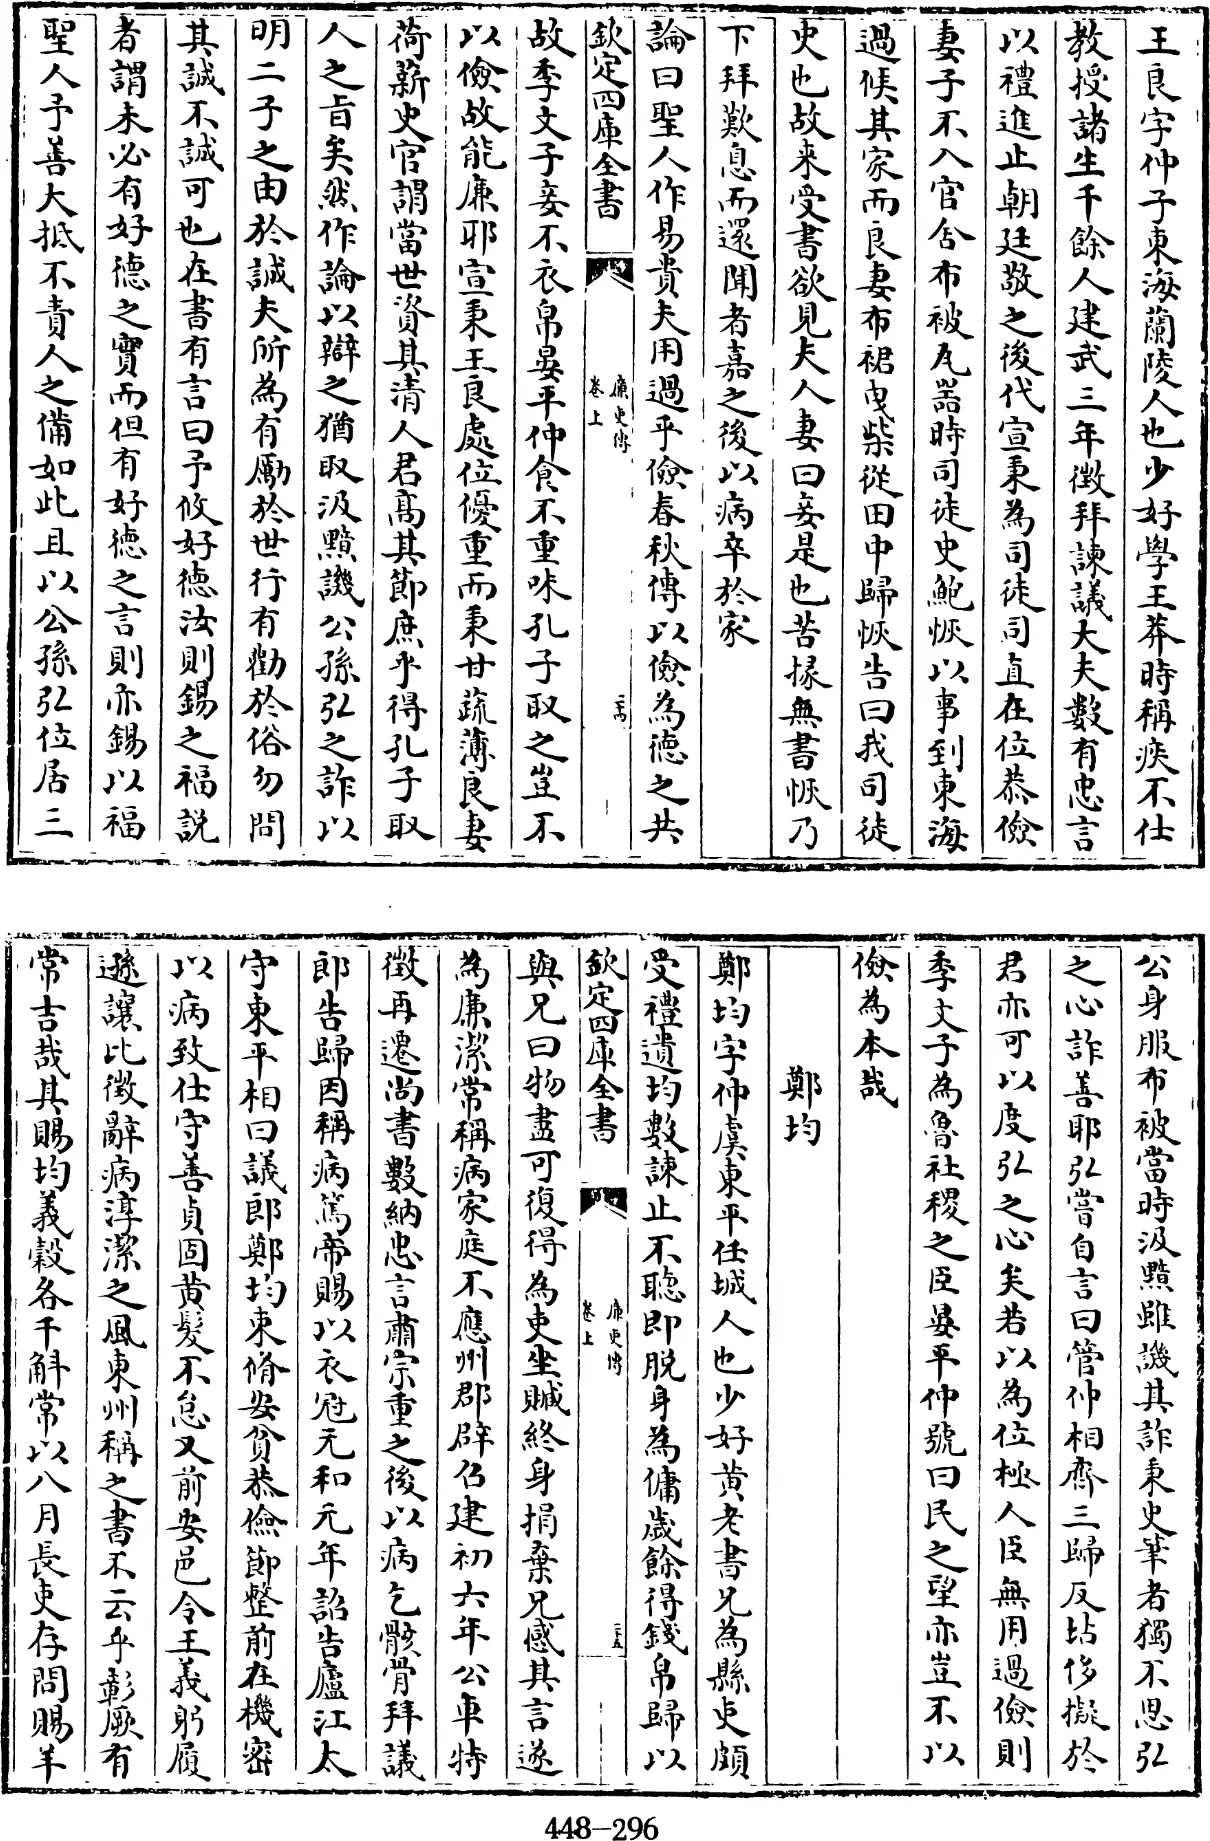 王良字仲子東海蘭陵人也少好學王莽時稱疾不仕
教授諸生千餘人建武三年徵拜諫議大夫數有忠言
以禮進止朝廷敬之後代宣秉為司徒司直在位恭儉
妻子不入官舍布被瓦器時司徒史鮑恢以事到東海
過候其家而良妻布裙曳柴從田中歸恢告曰我司徒
史也故来受書欲見夫人妻曰妾是也苦掾無書恢乃
下拜歎息而還聞者嘉之後以病卒於家
論曰聖人作易貴夫用過乎儉春秋傳以儉為德之共
欽定四庫全書
廉吏傳
卷上
二十四
故季文子妾不衣帛晏平仲食不重味孔子取之豈不
以儉故能廉耶宣秉王良處位優重而秉甘蔬薄良妻
荷薪史官謂當世資其清人君髙其節庶乎得孔子取
人之旨矣然作論以辯之猶取汲黯譏公孫弘之詐以
明二子之由於誠夫所為有勵於世行有勸於俗勿問
其誠不誠可也在書有言曰予攸好德汝則錫之福説
者謂未必有好德之實而但有好德之言則亦錫以福
聖人予善大抵不責人之備如此且以公孫弘位居三
公身服布被當時汲黯雖譏其詐秉史筆者獨不思弘
之心詐善耶弘嘗自言曰管仲相齊三歸反坫侈擬於
君亦可以度弘之心矣若以為位極人臣無用過儉則
季文子為魯社稷之臣晏平仲號曰民之望亦豈不以
儉為本哉
鄭均
鄭均字仲虞東平任城人也少好黄老書兄為縣吏頗
受禮遺均數諫止不聽即脱身為傭歳餘得錢帛歸以
欽定四庫全書
廉吏傳
卷上
二十五
與兄曰物盡可復得為吏坐贓終身捐棄兄感其言遂
為廉潔常稱病家庭不應州郡辟召建初六年公車特
徵再遷尚書數納忠言肅宗重之後以病乞骸骨拜議
郎告歸因稱病篤帝賜以衣冠元和元年詔告廬江太
守東平相曰議郎鄭均束脩安貧恭儉節整前在機密
以病致仕守善貞固黄髮不怠又前安邑令王義躬履
遜讓比徵辭病淳潔之風東州稱之書不云乎彰厥有
常吉哉其賜均義穀各千斛常以八月長吏存問賜羊
448-296